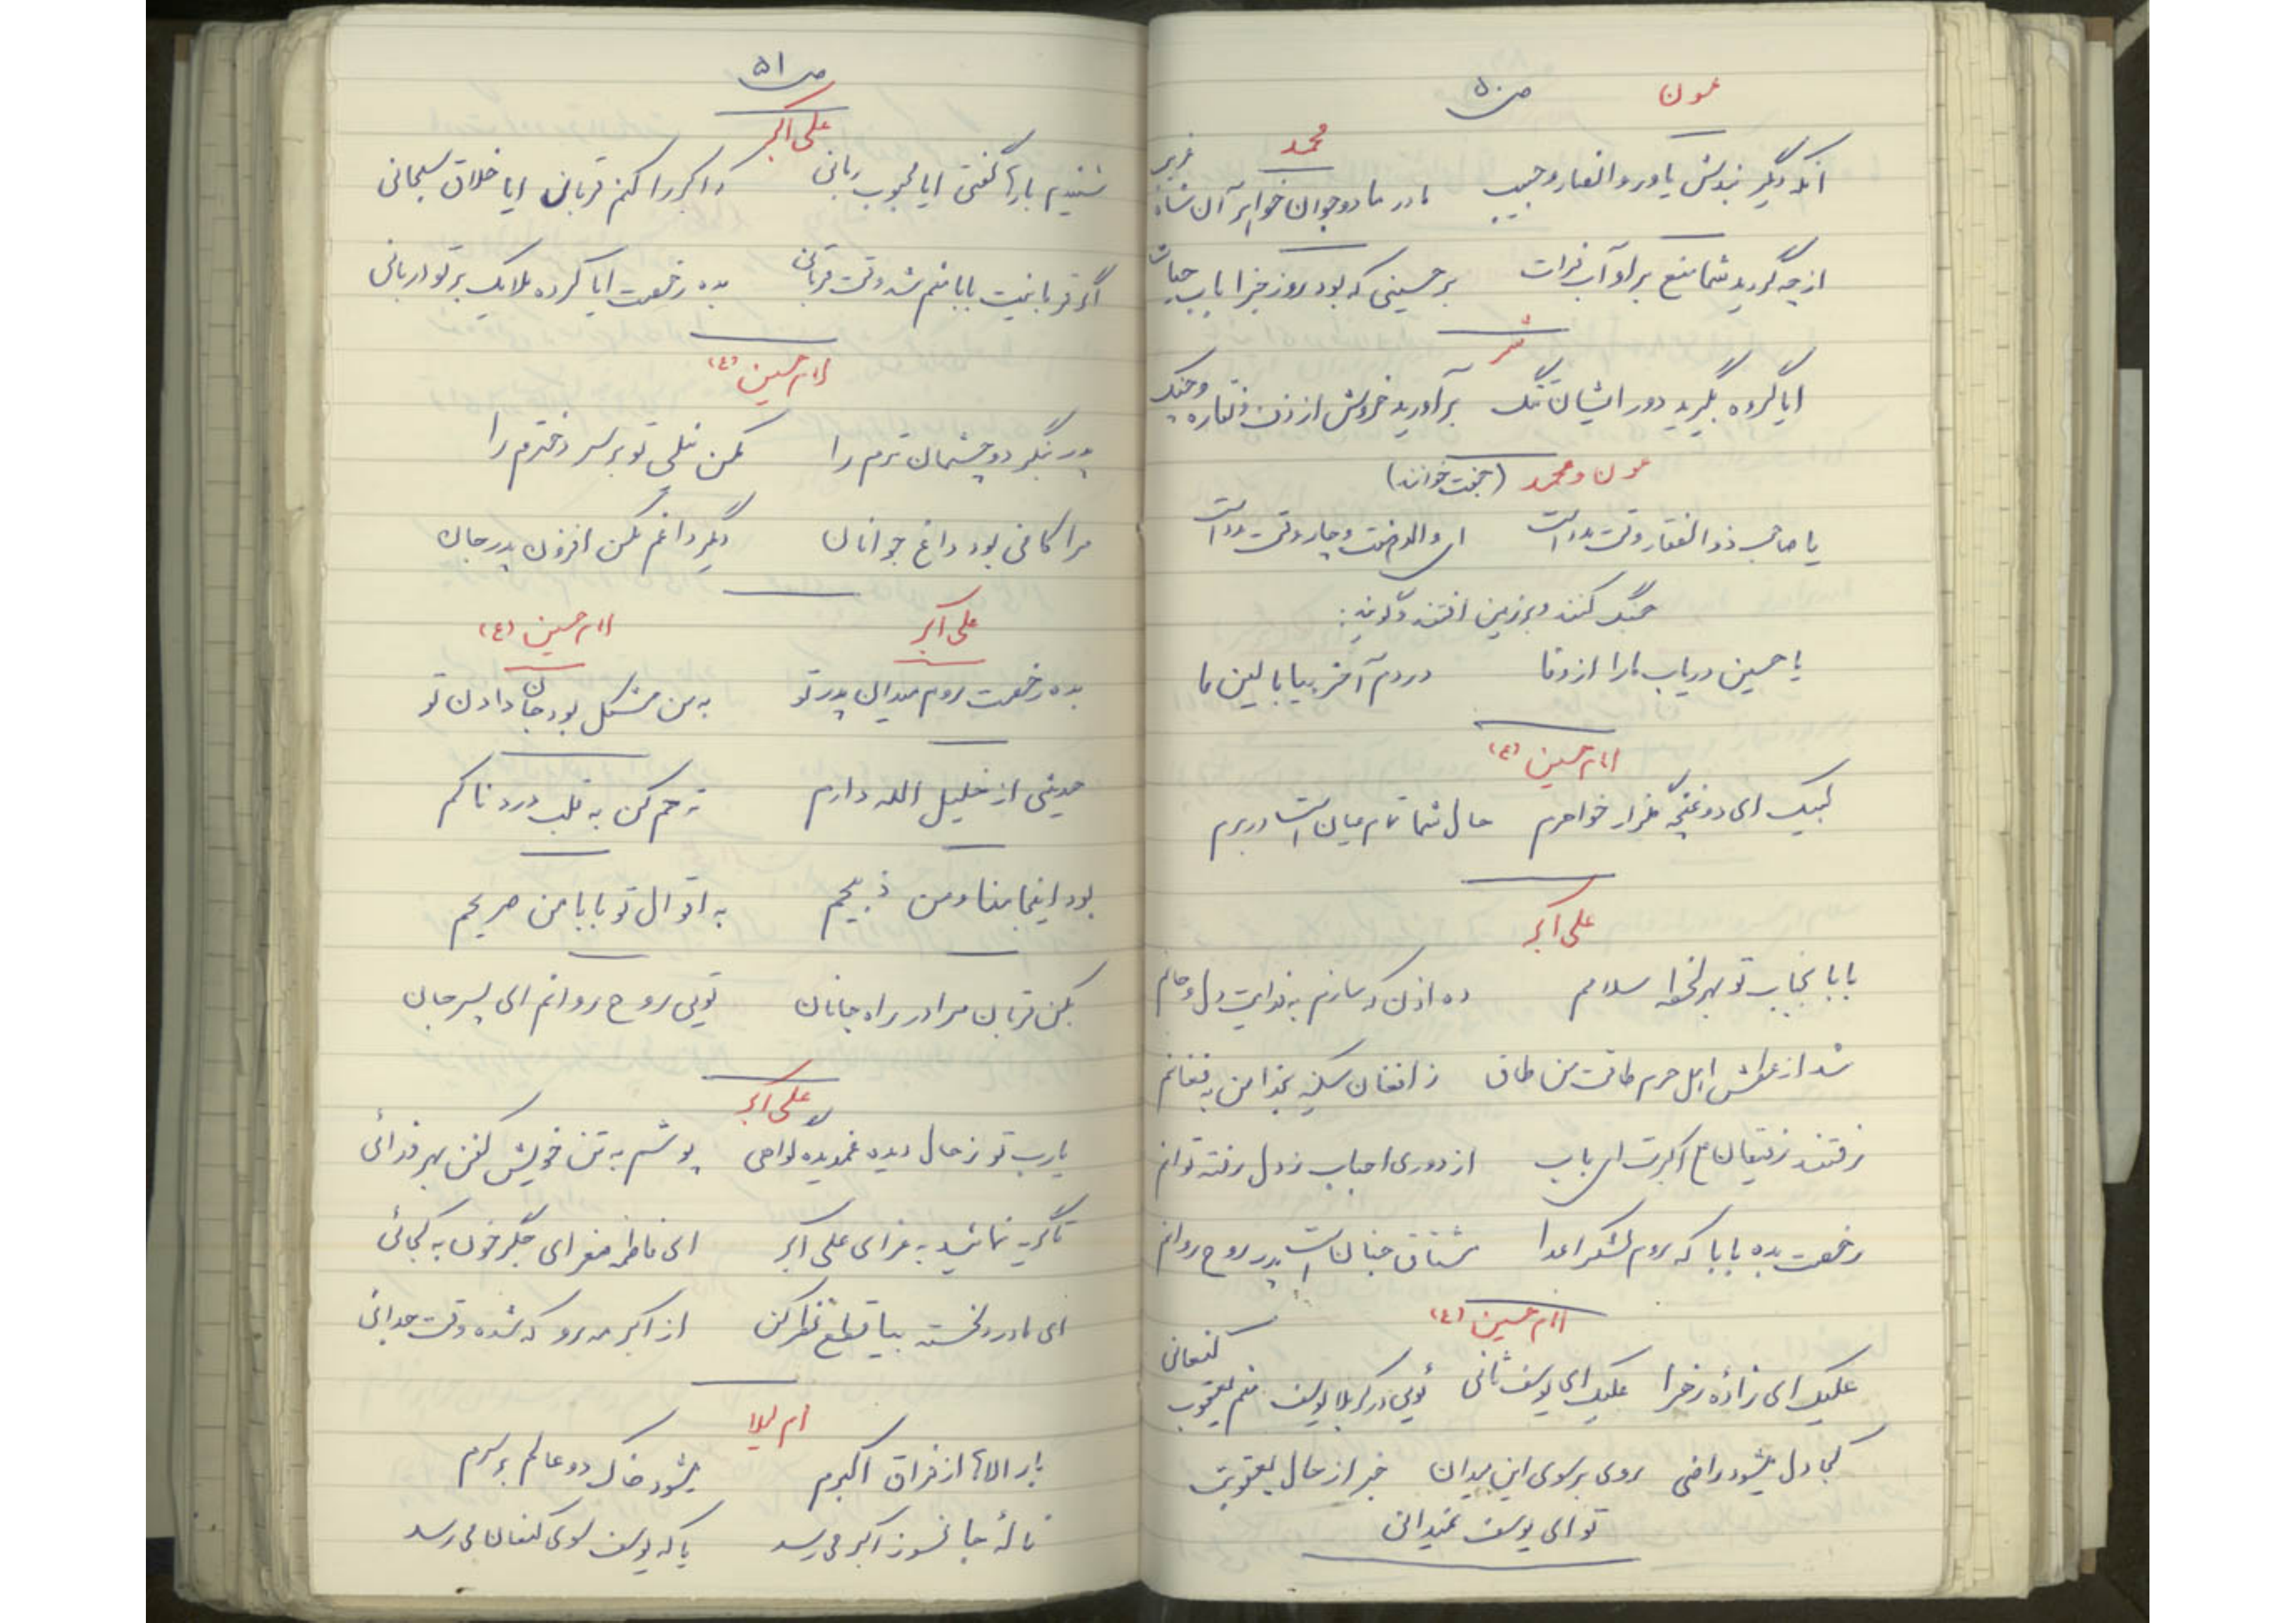 عون
ص ۵۰
آنکه دیگر نبدش یاور و انصار و حبیب
محمد
مادر ما دو جوان خواهر آن شاه غریب
از چه کردید شما منع بر او آب فرات      بر حسینی که بود روز جزا باب حیات
شمر
ایا گروه بگیرید دور ایشان تنگ      برآورید خروش از زدن نقاره و چنگ
عون و محمد (جفت خوانند)
یا صاحب ذوالفقار وقت مدد است      ای والد هشت و چار وقت مدد است
جنگ کنند و بر زمین افتند و گویند:
یا حسین دریاب ما را از وفا      در دم آخر بیا بالین ما
امام حسین (ع)
لبیک ای دو غنچه گلزار خواهرم      حال شما تمام عیان است در برم
علی اکبر
بابا بجناب تو بهر لحظه سلامم      ده اذن که سازم به فدایت دل و جانم
شد از عطش اهل حرم طاقت من طاق      ز افغان سکینه بخدا من به فغانم
رفتند رفیقان اکبرت ای باب      از دوری احباب ز دل رفته توانم
رخصت بده بابا که روم لشکر اعدا      مشتاق جنان است پدر روح روانم
امام حسین (ع)
علیک ای زاده زهرا علیک ای یوسف ثانی      توئی در کربلا یوسف منم یعقوب کنعانی
کجا دل میشود راضی روی بر سوی این میدان      خبر از حال یعقوبت
تو ای یوسف نمیدانی
ص ۵۱
علی اکبر
شنیدم بارها گفتی ایا محبوب ربانی      که اکبر را کنم قربان ایا خلاق سبحانی
اگر قربانیت بابا منم شد وقت قربانی      بده رخصت ایا کرده ملایک بر تو دربانی
امام حسین (ع)
پدر بنگر دو چشمان ترم را      مکن نیلی تو بر سر دخترم را
مرا کافی بود داغ جوانان      دیگر داغم مکن افزون پدر جان
علی اکبر      امام حسین (ع)
بده رخصت روم میدان پدر تو      به من مشکل بود جان دادن تو
حدیثی از خلیل الله دارم      ترحم کن به قلب دردناکم
بود اینجا منا و من ذبیحم      به اقوال تو بابا من صریحم
بکن قربان مرا در راه جانان      تویی روح روانم ای پسر جان
علی اکبر
یارب تو ز حال دیده غمدیده گواهی      پوشم به تن خویش کفن بهر فدائی
تا گریه نمائید به عزای علی اکبر      ای فاطمه صغرای جگر خون به کجائی
ای مادر دلخسته بیا قطع نظر کن      از اکبر مه رو که شده وقت جدائی
ام لیلا
بار الاها از فراق اکبرم      میشود خاک دو عالم بر سرم
ناله جانسوز اکبر می رسد      یا که یوسف سوی کنعان می رسد